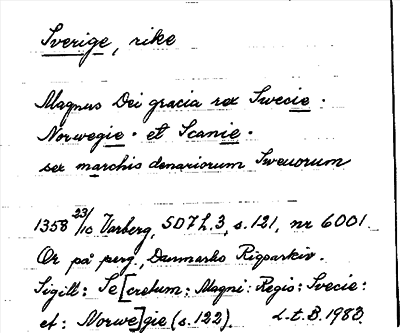 Sverige, rike
Magnus Dei gracia rex Swecie.
Norwegie. et Scanie.
sex marchis denariorum Sweuorum
1358 23/10 Varberg, SD 7 h. 3, s. 121, nr 6001.
Or på perg., Danmarks Rigsarkiv.
Sigill: Se[cretum: Magni: Regis: Svecie:
et: Norwe]gie (s. 122). L-t. B. 1983.